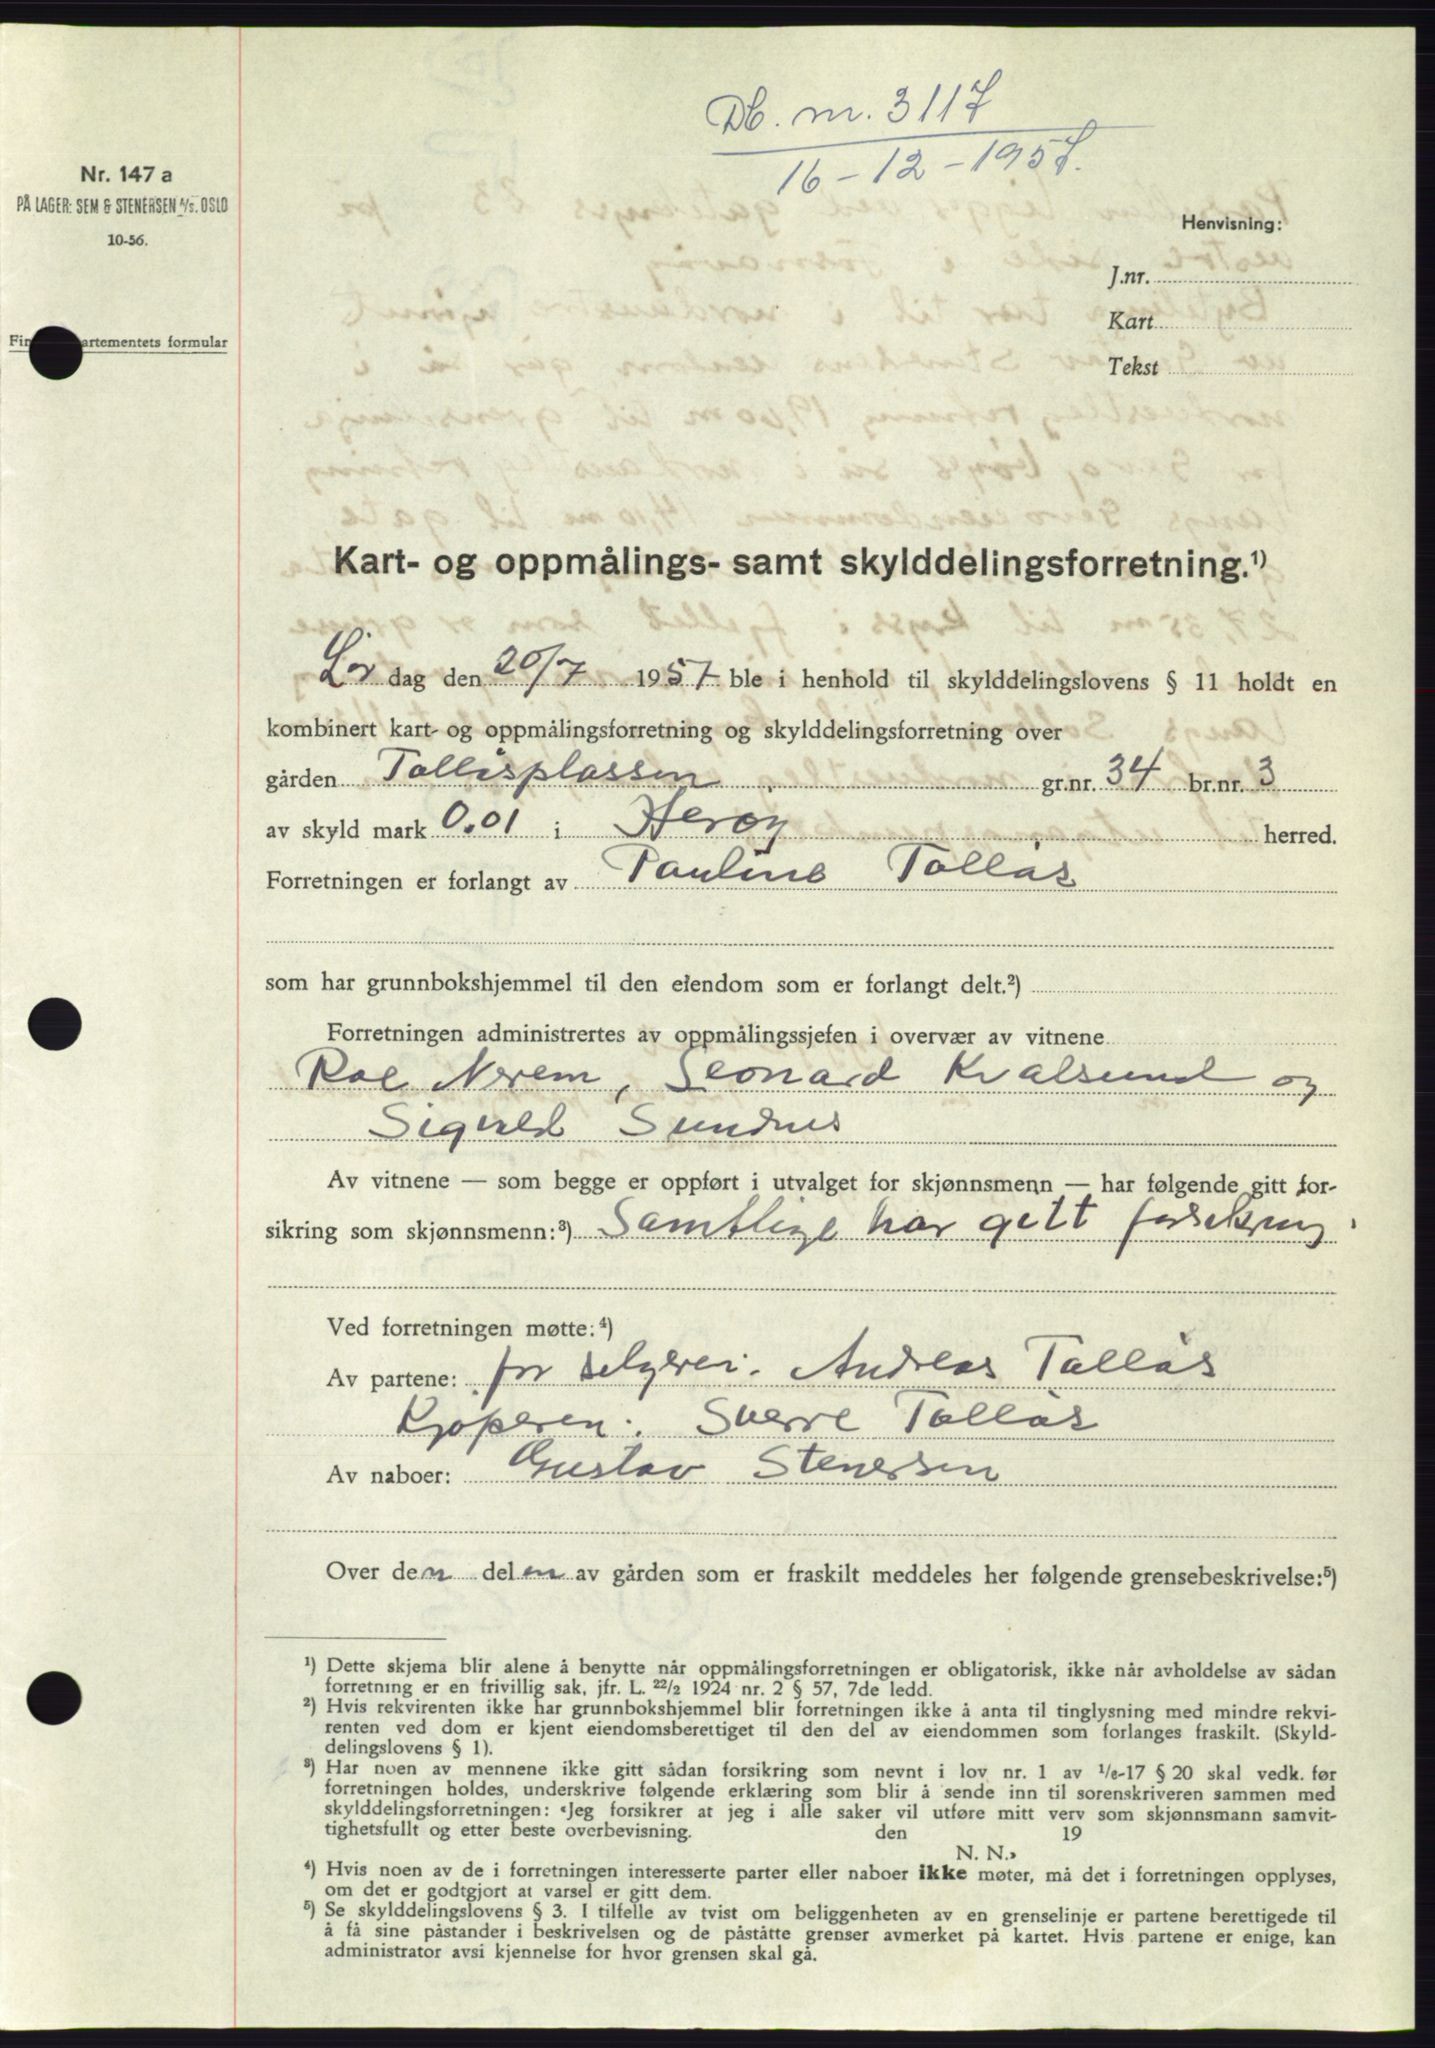 Db. nr. 3117
16-12-1957.
Nr. 147 a
PÅ LAGER: SEM & STENERSEN A/S. OSLO
10-56.
Henvisning:
J.nr.
Kart
Tekst
Fin artementets formular
Kart- og oppmålings- samt skylddelingsforretning.¹)
Lør dag den 20/7 1957 ble i henhold til skylddelingslovens § 11 holdt en
kombinert kart- og oppmålingsforretning og skylddelingsforretning over
gården Tallåsplassen gr.nr. 34 br.nr. 3
av skyld mark 0.01 i Herøy herred.
Forretningen er forlangt av Pauline Tallås
som har grunnbokshjemmel til den eiendom som er forlangt delt.²)
Forretningen administrertes av oppmålingssjefen i overvær av vitnene
Roe Nerem, Leonard Kvalsund og
Sigvald Sundnes
Av vitnene — som begge er oppført i utvalget for skjønnsmenn — har følgende gitt for-
sikring som skjønnsmenn:³) Samtlige har gitt forsikring.
Ved forretningen møtte:⁴)
Av partene: for selgeren: Andreas Tallås
Kjøperen: Sverre Tallås
Av naboer: Gustav Stenersen
Over den delen av gården som er fraskilt meddeles her følgende grensebeskrivelse:⁵)
¹) Dette skjema blir alene å benytte når oppmålingsforretningen er obligatorisk, ikke når avholdelse av sådan
forretning er en frivillig sak, jfr. L. 22/2 1924 nr. 2 § 57, 7de ledd.
²) Hvis rekvirenten ikke har grunnbokshjemmel blir forretningen ikke å anta til tinglysning med mindre rekvi-
renten ved dom er kjent eiendomsberettiget til den del av eiendommen som forlanges fraskilt. (Skyld-
delingslovens § 1).
³) Har noen av mennene ikke gitt sådan forsikring som nevnt i lov nr. 1 av 1/6-17 § 20 skal vedk. før
forretningen holdes, underskrive følgende erklæring som blir å sende inn til sorenskriveren sammen med
skylddelingsforretningen: «Jeg forsikrer at jeg i alle saker vil utføre mitt verv som skjønnsmann samvit-
tighetsfullt og etter beste overbevisning. den 19
N. N.»
⁴) Hvis noen av de i forretningen interesserte parter eller naboer ikke møter, må det i forretningen opplyses,
om det er godtgjort at varsel er gitt dem.
⁵) Se skylddelingslovens § 3. I tilfelle av tvist om beliggenheten av en grenselinje er partene berettigede til
å få sine påstander i beskrivelsen og de påståtte grenser avmerket på kartet. Hvis partene er enige, kan
administrator avsi kjennelse for hvor grensen skal gå.